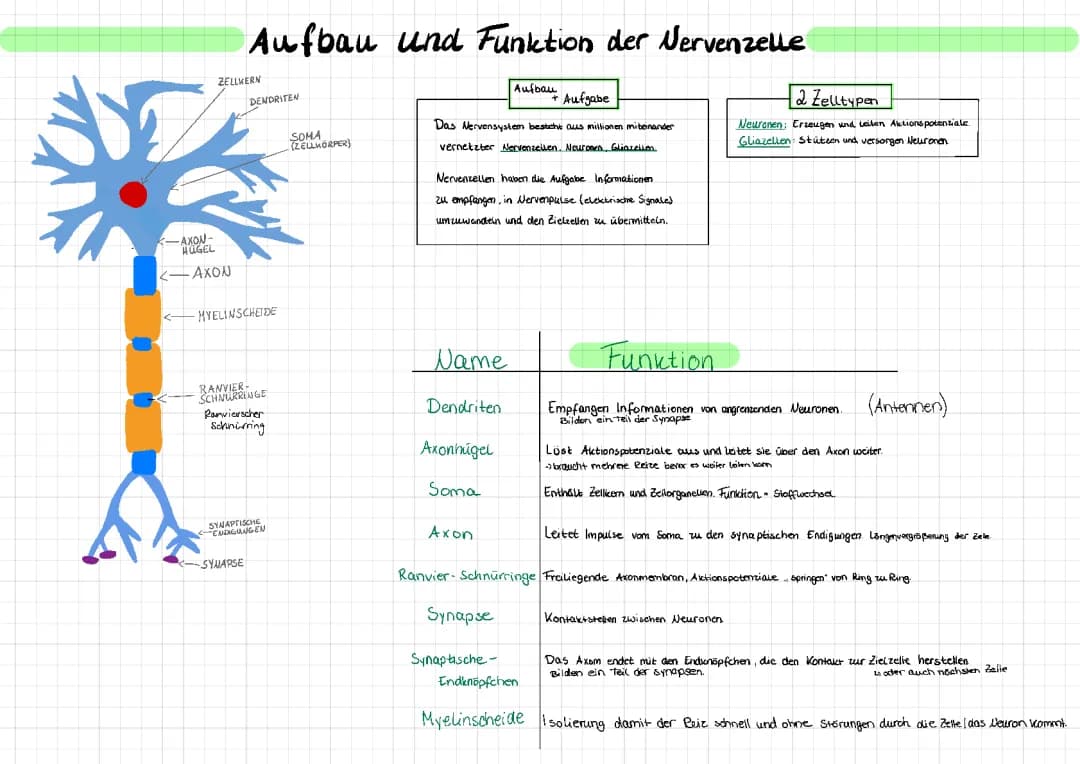 Aufbau und Funktion der Nervenzelle
ZELLKERN
DENDRITEN
SOMA
(ZELLKÖRPER)
AXON-
HÜGEL
AXON
MYELINSCHEIDE
RANVIER-
SCHNÜRRINGE
Ranvierscher
Schnürring
SYNAPTISCHE
ENDIGUNGEN
SYNAPSE
Aufbau
+ Aufgabe
Das Nervensystem besteht aus millionen miteinander
vernetzter Nervenzellen, Neuronen, Gliazellen.
Nervenzellen haben die Aufgabe Informationen
zu empfangen, in Nervenpulse (elektrische Signale)
umzuwandeln und den Zielzellen zu übermitteln.
2 Zelltypen
Neuronen: Erzeugen und leiten Aktionspotentiale
Gliazellen: Stützen und versorgen Neuronen
Name
Funktion
Dendriten
Empfangen Informationen von angrenzenden Neuronen. (Antennen)
Bilden ein Teil der Synapse
Axonhügel
Löst Aktionspotenziale aus und leitet sie über den Axon weiter.
→ braucht mehrere Reize bevor es weiter leiten kann
Soma
Enthält Zellkern und Zellorganellen. Funktion = Stoffwechsel
Axon
Leitet Impulse vom Soma zu den synaptischen Endigungen Längenvergrößerung der Zelle.
Ranvier-Schnürringe
Freiliegende Axonmembran, Aktionspotenziale „springen" von Ring zu Ring.
Synapse
Kontaktstellen zwischen Neuronen
Synaptische-
Endknöpfchen
Das Axom endet mit den Endknöpfchen, die den Kontakt zur Zielzelle herstellen
↳ oder auch nächsten Zelle
Bilden ein Teil der Synapsen.
Myelinscheide
Isolierung damit der Reiz schnell und ohne Störungen durch die Zelle/das Neuron kommt.